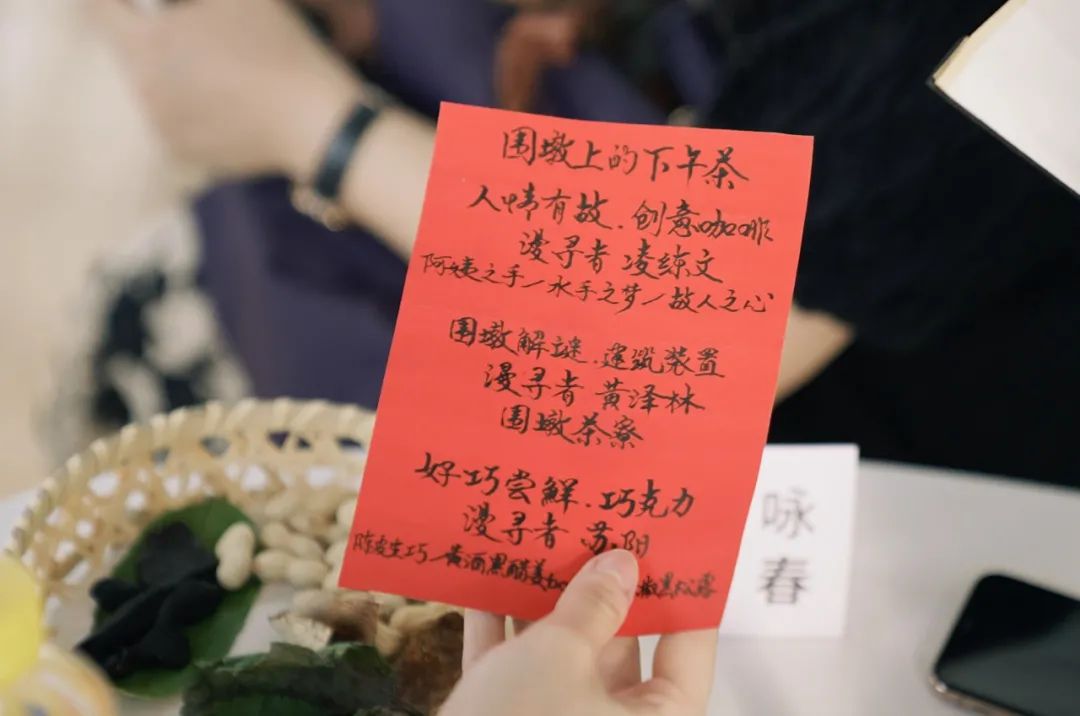 围墩上的下午茶
人情有故.创意咖啡
漫寻者 凌综文
阿姨之手/水手之梦/故人之心
围墩解谜.建筑装置
漫寻者 黄泽林
围墩茶寮
好巧尝鲜.巧克力
漫寻者 苏阳
陈皮生巧/黄酒黑醋姜 黑松露
咏春